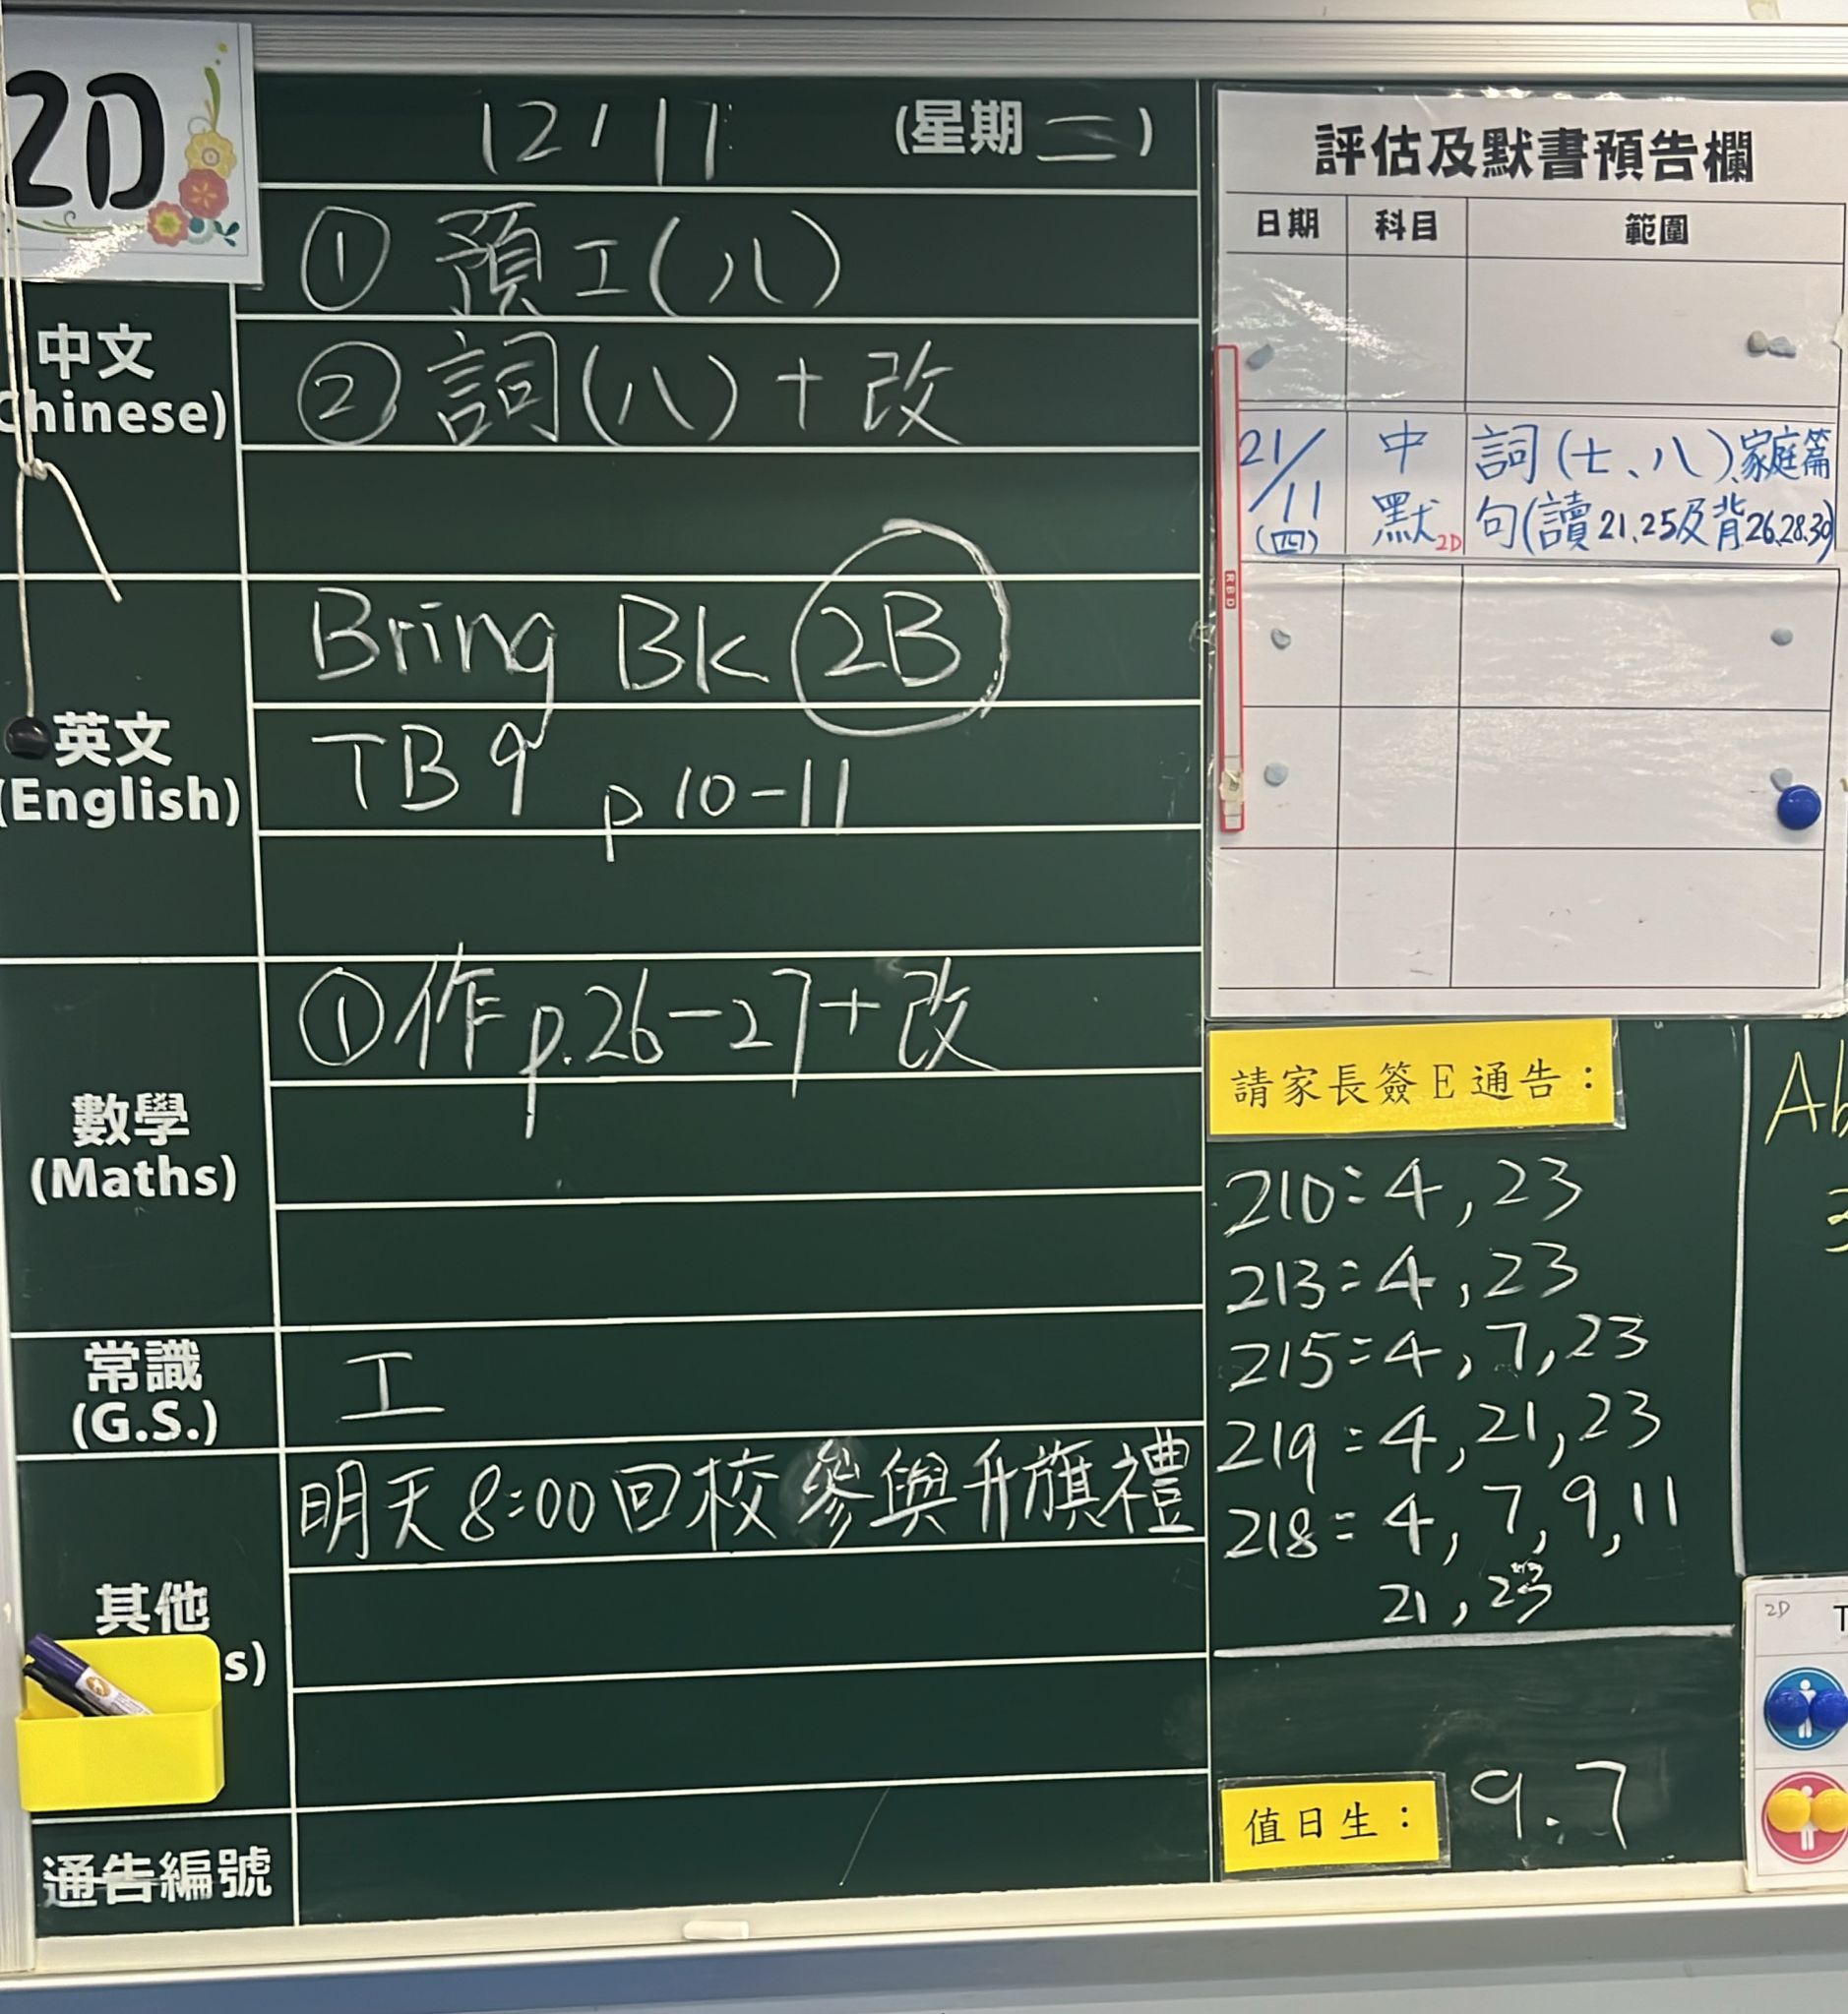 2D
12/11 (星期二)
中文
Chinese)
① 預工(八)
② 詞(八)+改
英文
(English)
Bring Bk 2B
TB 9 p10-11
數學
(Maths)
① 作 p.26-27+改
常識
(G.S.)
工
其他
s)
明天8:00回校參與升旗禮
通告編號
評估及默書預告欄
日期 科目 範圍
21/11 (四) 中默 2D 詞(七、八)、家庭篇
句(讀21,25及背26,28,30)
RED
請家長簽E通告:
210:4,23
213:4,23
215:4,7,23
219:4,21,23
218:4,7,9,11
21,23
值日生: 9.7
Ab
2D T